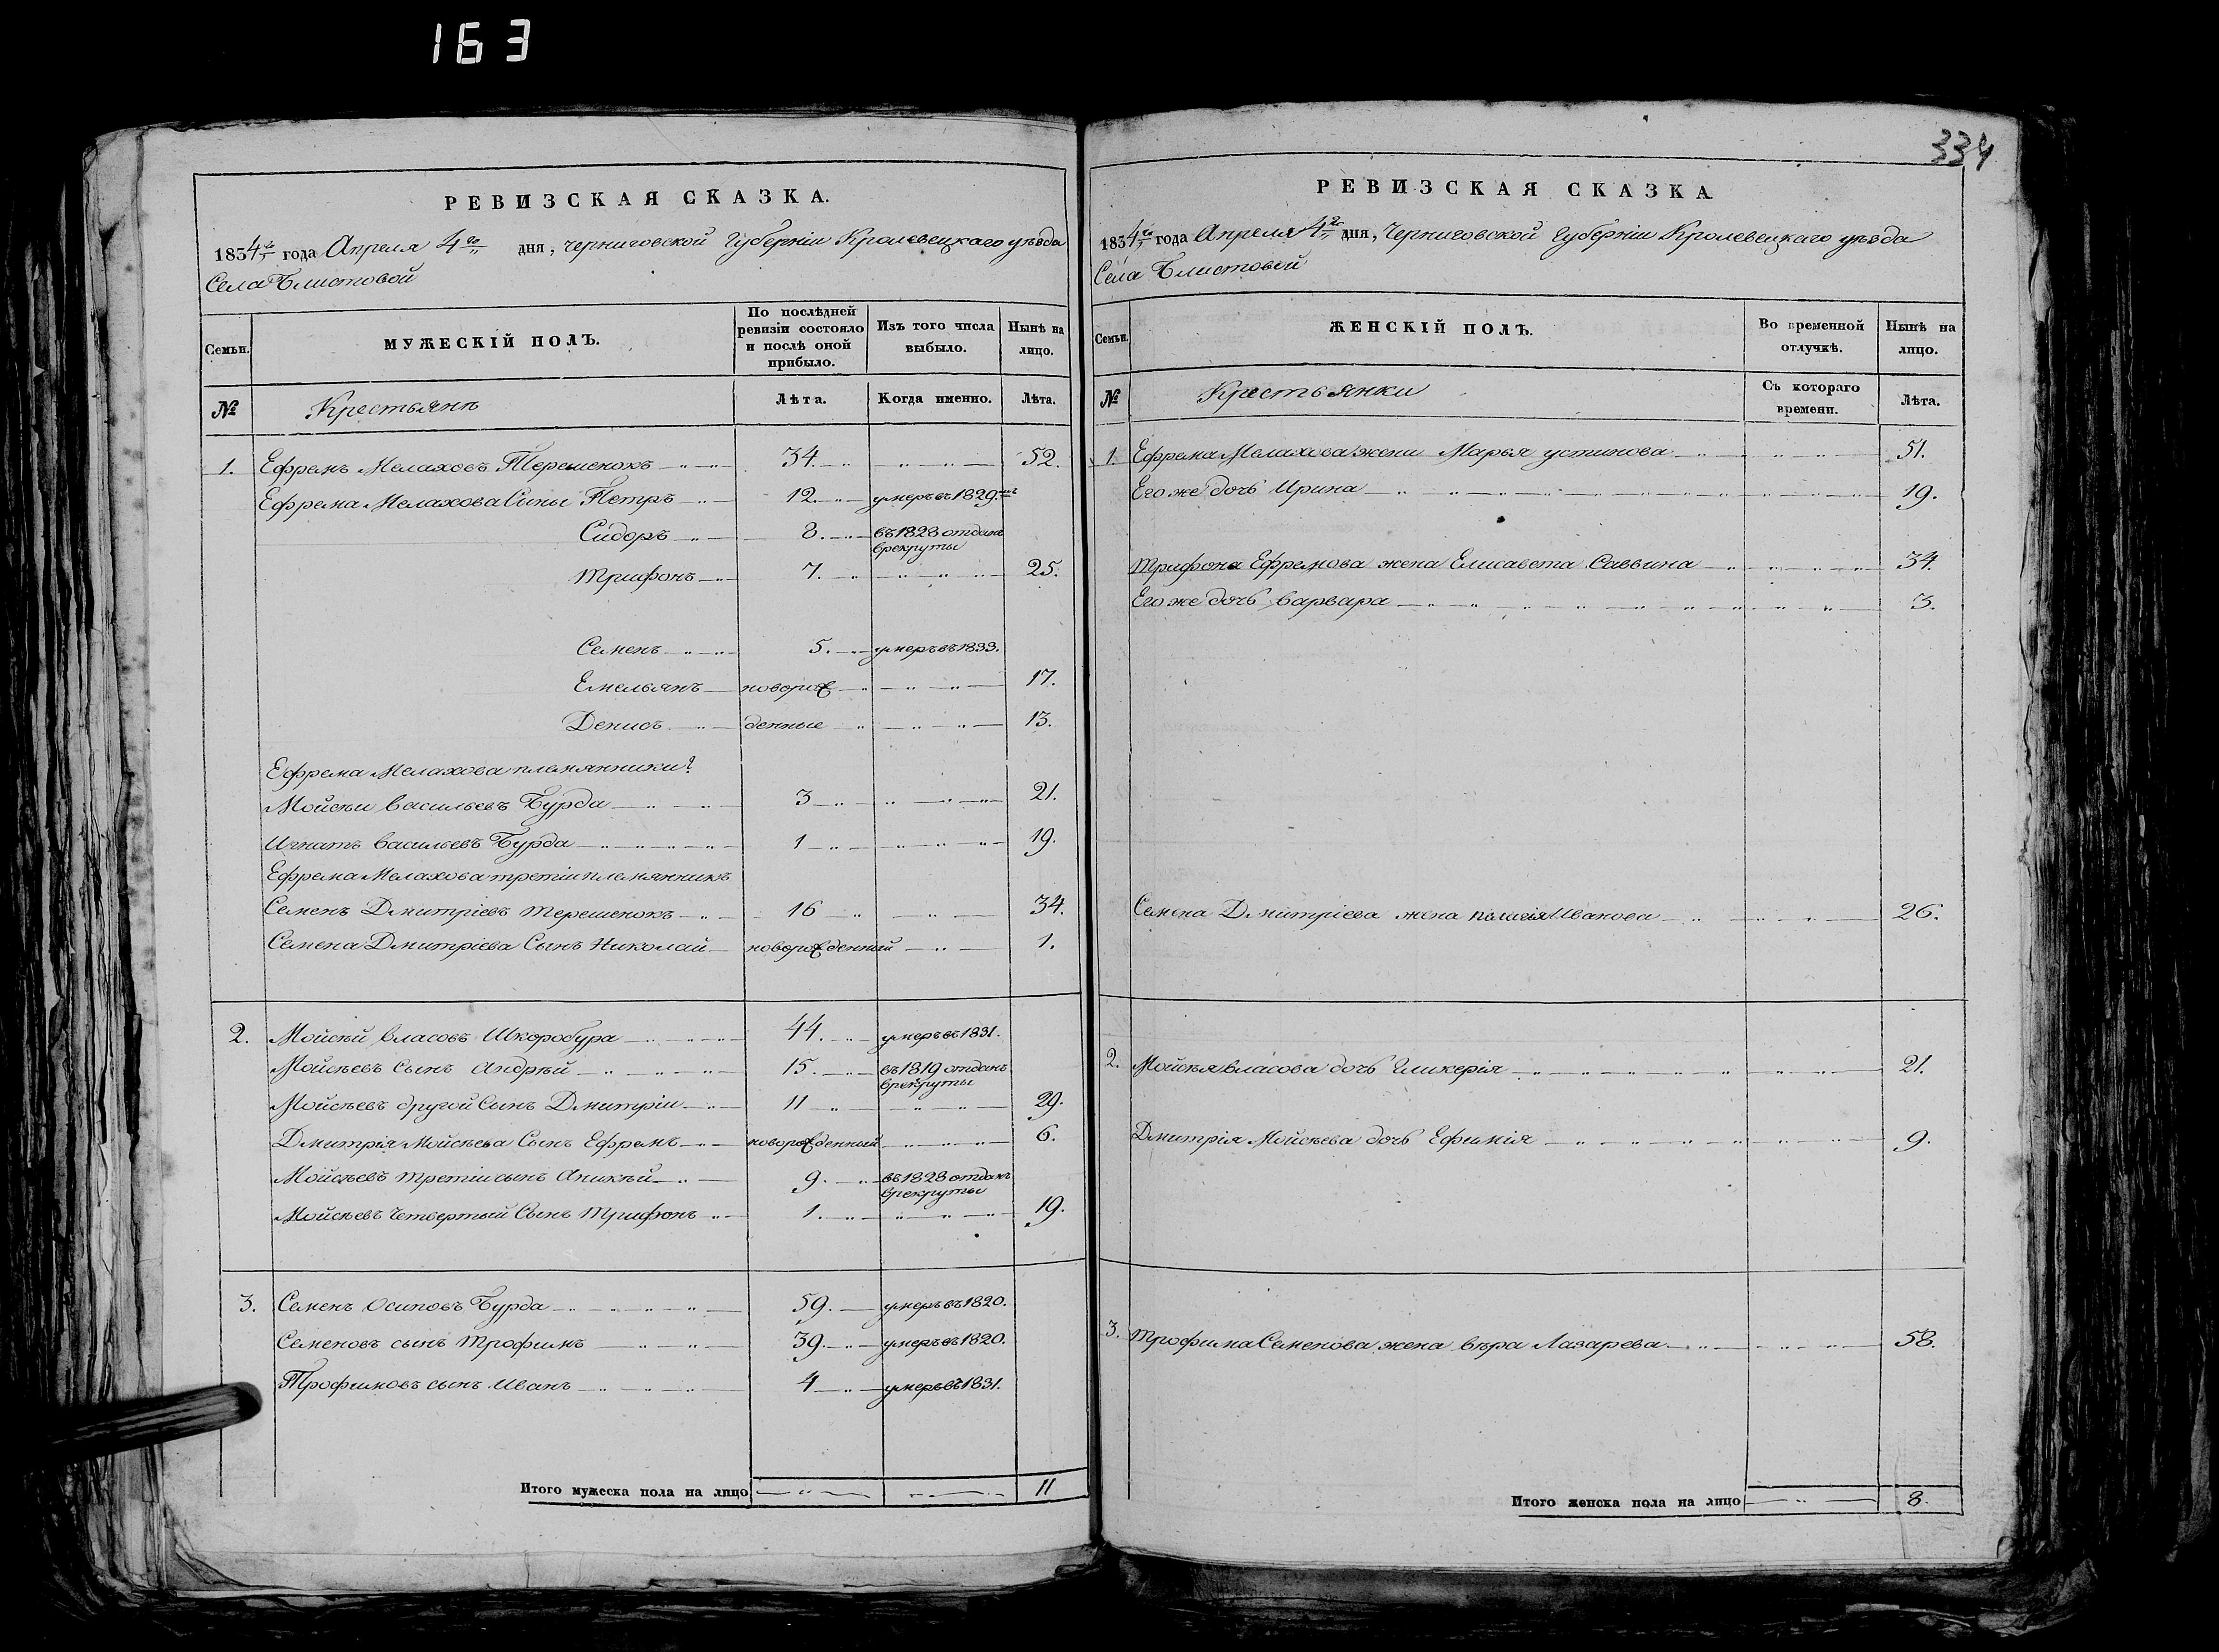 163
334
РЕВИЗСКАЯ СКАЗКА.
1834го года Апреля 4го дня, Черниговской Губерніи Кролевецкаго уѣзда
Села Блистовой
Семьи.
МУЖЕСКІЙ ПОЛЪ.
По послѣдней ревизіи состояло и послѣ оной прибыло.
Изъ того числа выбыло.
Нынѣ на лицо.
№ Крестьянъ Лѣта. Когда именно. Лѣта.
1. Ефремъ Мелаховъ Терешенокъ 34. 52.
Ефрема Мелахова Сины Петръ 12. умеръ въ 1829.
Сидоръ 8. въ 1828 отданъ
врекруты
Трифонъ 7. 25.
Семенъ 5. умеръ въ 1833.
Емельянъ новорож 17.
Денисъ денные 13.
Ефрема Мелахова племянники
Мойсѣи Васильевъ Бурда 3 21.
Игнатъ Васильевъ Бурда 1 19.
Ефрема Мелахова третіи племянникъ
Семенъ Дмитріевъ Терешенокъ 16 34.
Семена Дмитріева Сынъ Николай новорожденный 1.
2. Мойсѣй Власовъ Шкоробура 44. умеръ въ 1831.
Мойсѣевъ Сынъ Андрѣй 15. въ 1819 отданъ
врекруты
Мойсѣевъ другой Сынъ Дмитріи 11 29.
Дмитрія Мойсѣева Сынъ Ефремъ новорожденный 6.
Мойсѣевъ третіи сынъ Аникѣй 9. въ 1828 отданъ
врекруты
Мойсѣевъ Четвертый Сынъ Трифонъ 1. 19.
3. Семенъ Осиповъ Бурда 59. умеръ въ 1820.
Семеновъ сынъ Трофимъ 39. умеръ въ 1820.
Трофимовъ сынъ Иванъ 4 умеръ въ 1831.
Итого мужеска пола на лицо 11
РЕВИЗСКАЯ СКАЗКА
1834го года Апреля 4го дня, Черниговской Губерніи Кролевецкаго уѣзда
Села Блистовой
Семьи.
ЖЕНСКІЙ ПОЛЪ.
Во временной отлучкѣ.
Нынѣ на лицо.
№ Крестьянки Съ котораго времени. Лѣта.
1. Ефрема Мелахова жена Марья устинова 51.
Его же дочь Ирина 19.
Трифона Ефремова жена Елисавета Саввина 34.
Его же дочь Варвара 3.
Семена Дмитріева жена Пелагія Иванова 26.
2. Мойсѣя Власова дочь Гликерія 21.
Дмитрія Мойсѣева дочь Ефимія 9.
3. Трофима Семенова жена Вѣра Лазарева 58.
Итого женска пола на лицо 8.